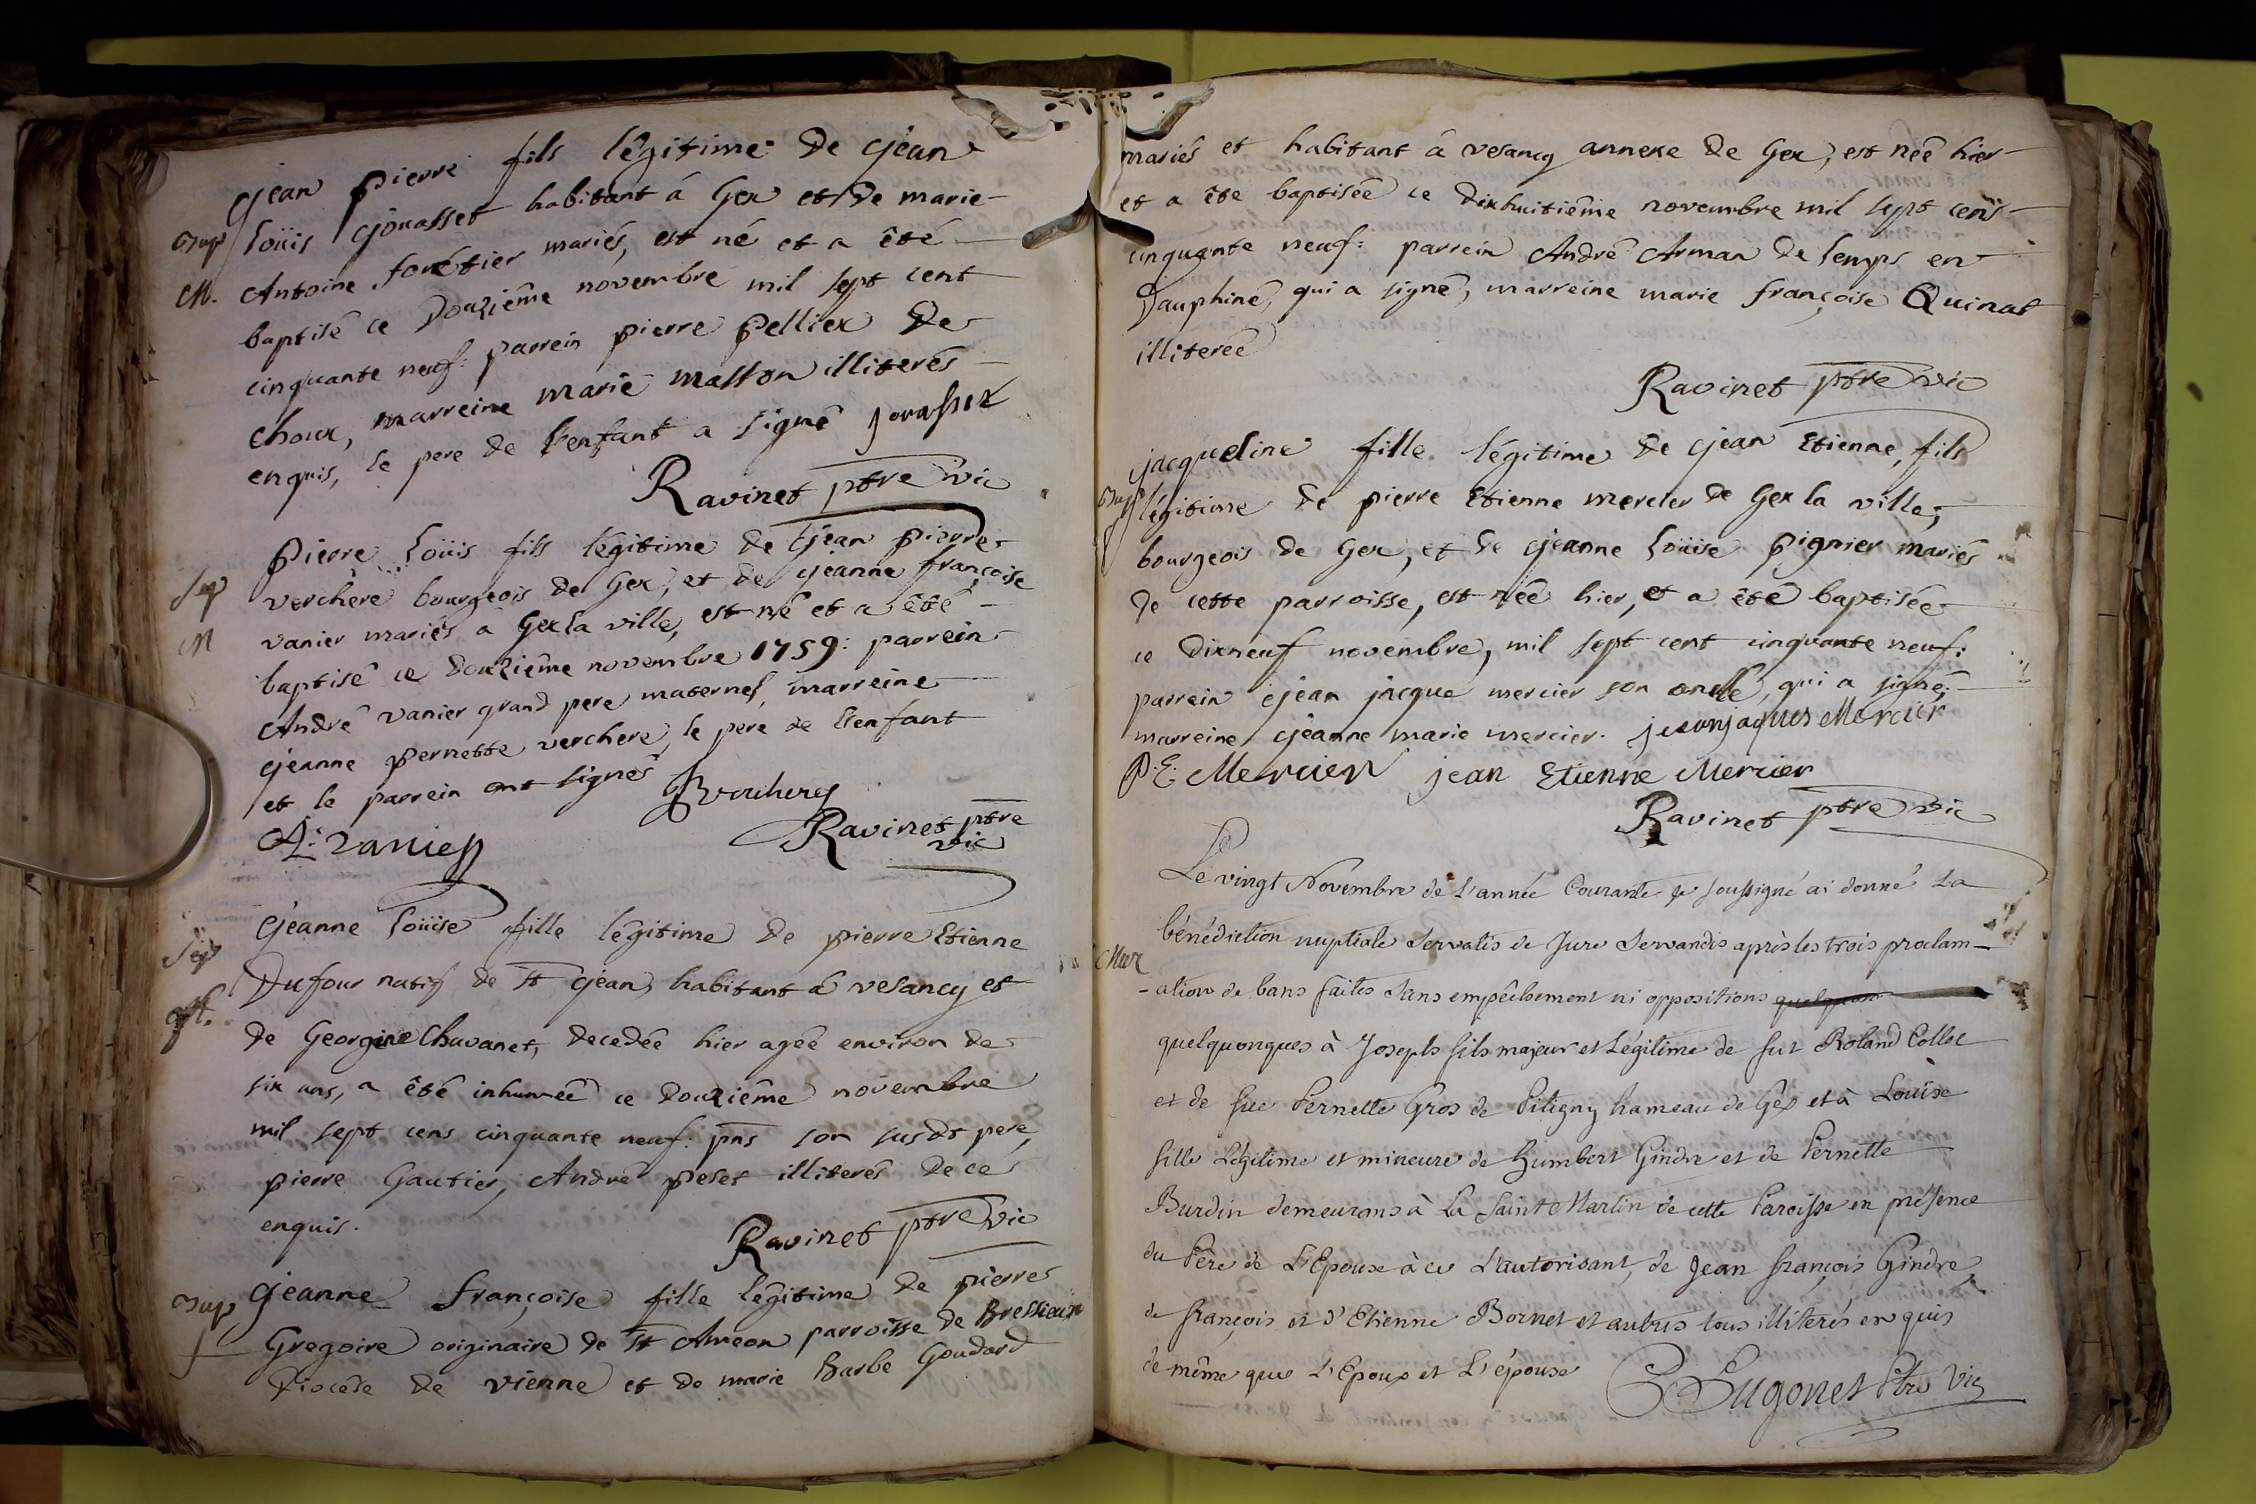 jean pierre fils légitime de jean
Bap loüis joüasset habitant á Gex et de marie
M. Antoine forêtier mariés, est né et a êté
baptisé ce Douzième novembre mil sept cent
cinquante neuf: parrein pierre pelliex de
choux, marreine marie masson illiterés
enquis, le pere de l'enfant a signé jouasset
Ravinet ptre vic
pierre loüis fils légitime de jean pierre
Bap verchere bourgeois de Gex, et de jeanne françoise
M vanier mariés a Gex la ville, est né et a êté
baptisé ce douzième novembre 1759: parrein
André vanier grand pere maternel, marreine
jeanne pernette verchere, le pere de l'enfant
et le parrein ont signés
A: vanier Ravinet ptre
vic
jeanne loüise fille légitime de pierre Etienne
Sep Dufour natif de st jean, habitant á vesancy et
de Georgine Chavanet, decedée hier agée environ de
six ans, a êté inhumée ce douzième novembre
mil sept cens cinquante neuf: pns son susdt pere,
pierre Gautier, André peset illiterés de ce
enquis.
Ravinet ptre vic
Bap jeanne françoise fille légitime de pierre
f Gregoire originaire de st Ameon parroisse de Bressieux
Diocèse de vienne et de marie Barbe Goudard
mariés et habitant á vesancy annexe de Gex, est née hier
et a ête baptisée ce dixhuitième novembre mil sept cens
cinquante neuf: parrein André Arman de lemps en
Dauphiné, qui a signé, marreine marie françoise Quinat
illiterée
Ravinet ptre vic
jacqueline fille légitime de jean Etienne, fils
Bap légitime de pierre Etienne mercier de Gex la ville,
f bourgeois de Gex, et de jeanne loüise pignier mariés
de cette parroisse, est née hier, et a êtê baptisée
ce dixneuf novembre, mil sept cent cinquante neuf:
parrein jean jacque mercier son oncle, qui a signé,
marreine jeanne marie mercier. jeanjaques Mercier
P. E. Mercier jean Etienne Mercier
Ravinet ptre vic
Le vingt Novembre de L'année Courante je soussigné ai donné La
bénédiction nuptiale servatis de Jure servandis après les trois proclam-
Mar -ation de bans faites sans empêchement ni oppositions quelquon
quelquonques à Joseph fils majeur et Légitime de fut Roland Collet
et de fue Pernette Gros de Pitigny hameau de Gêx et à Louise
fille Légitime et mineure de Humbert Gindre et de Pernette
Burdin demeurans à La Saint Martin de cette Paroisse en présence
du Père de L'Epouse à ce L'autorisant, de Jean François Gindre,
de François et d'Etienne Bornet et autres tous illiterés enquis
de même que L'Epoux et L'épouse Dugonet Ptre Vic